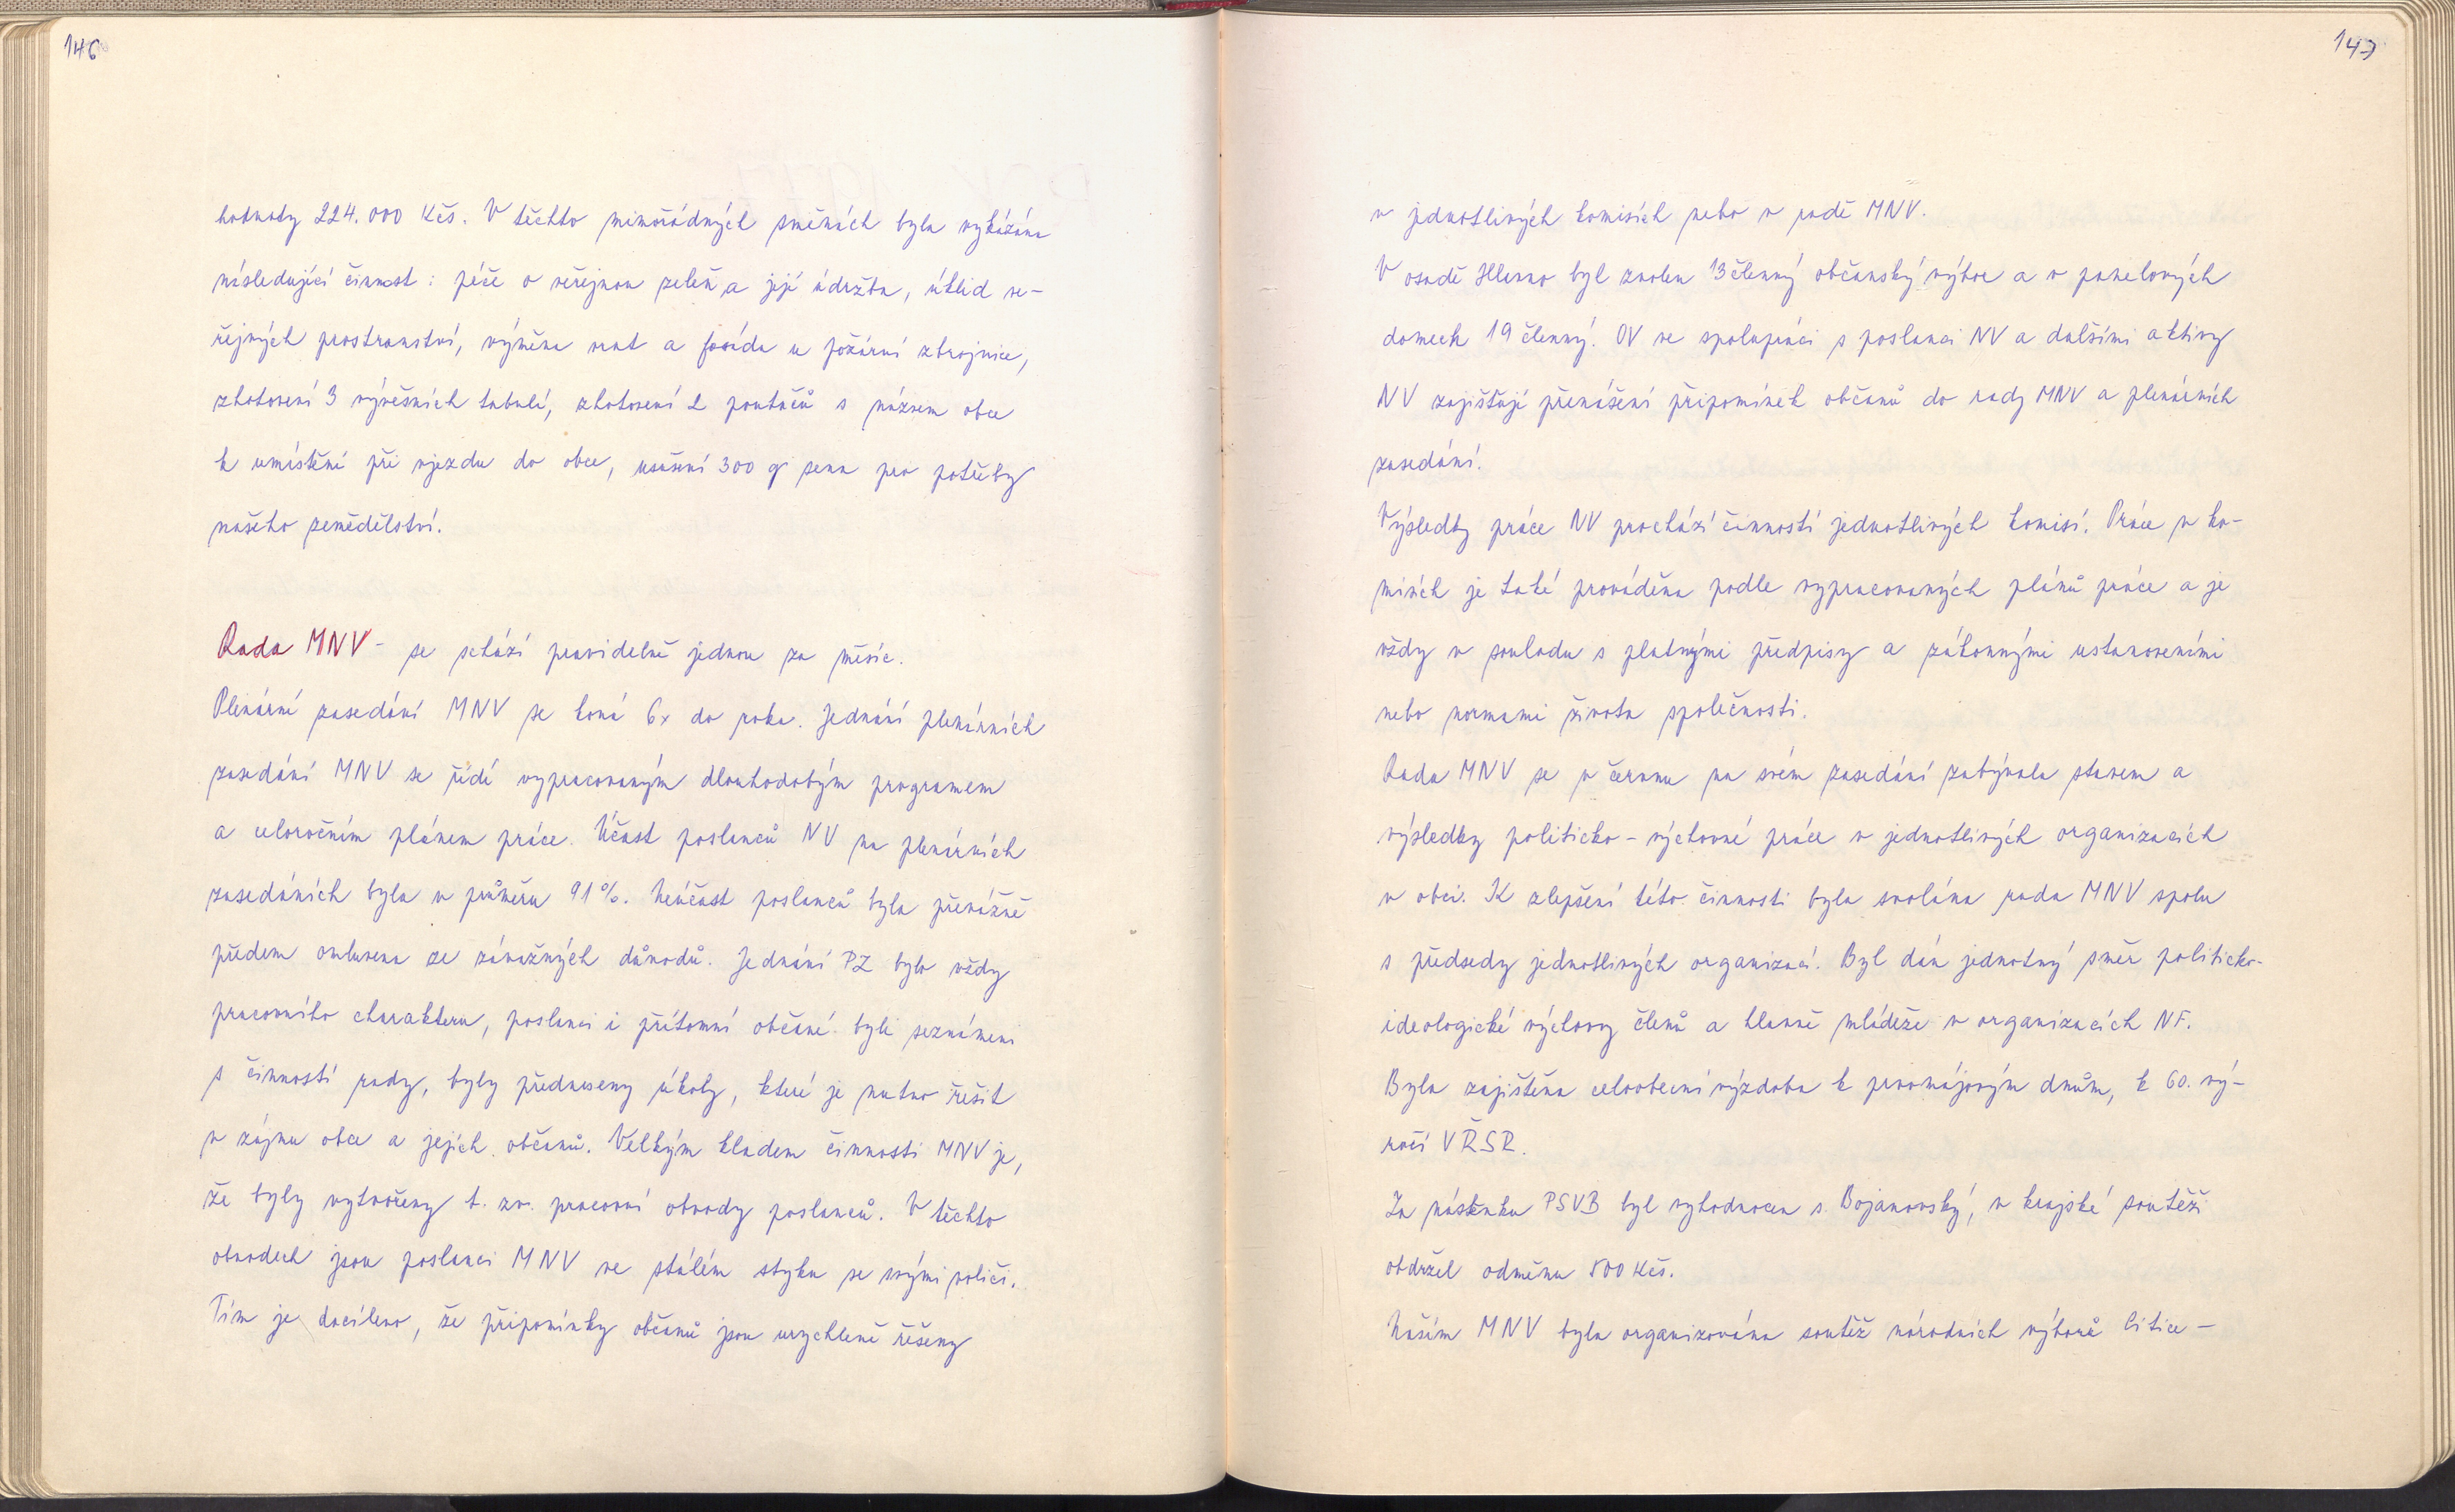 146
hodnoty 224.000 Kčs. V těchto mimořádných směnách byla vykázána
následující činnost: péče o veřejnou zeleň a její údržba, úklid ve-
řejných prostranství, výměna vrat a fasáda u požární zbrojnice,
zhotovení 3 vývěsních tabulí, zhotovení 2 poutačů s názvem obce
k umístění při vjezdu do obce, usušení 300 q sena pro potřeby
našeho zemědělství.
Rada MNV - se schází pravidelně jednou za měsíc.
Plenární zasedání MNV se koná 6x do roka. Jednání plenárních
zasedání MNV se řídí vypracovaným dlouhodobým programem
a celoročním plánem práce. Účast poslanců NV na plenárních
zasedáních byla v průměru 91%. Neúčast poslanců byla převážně
předem omluvena ze závažných důvodů. Jednání PZ bylo vždy
pracovního charakteru, poslanci i přítomní občané byli seznámeni
s činností rady, byly předneseny úkoly, které je nutno řešit
v zájmu obce a jejích občanů. Velkým kladem činnosti MNV je,
že byly vytvořeny t. zv. pracovní obvody poslanců. V těchto
obvodech jsou poslanci MNV ve stálém styku se svými voliči.
Tím je docíleno, že připomínky občanů jsou urychleně řešeny
147
v jednotlivých komisích nebo v radě MNV.
V osadě Hlevno byl zvolen 13členný občanský výbor a v panelových
domech 19 členný. OV ve spolupráci s poslanci NV a dalšími aktivy
NV zajišťují přenášení připomínek občanů do rady MNV a plenárních
zasedání.
Výsledky práce NV prochází činností jednotlivých komisí. Práce v ko-
misích je také prováděna podle vypracovaných plánů práce a je
vždy v souladu s platnými předpisy a zákonnými ustanoveními
nebo normami života společnosti.
Rada MNV se v červnu na svém zasedání zabývala stavem a
výsledky politicko-výchovné práce v jednotlivých organizacích
v obci. K zlepšení této činnosti byla svolána rada MNV spolu
s předsedy jednotlivých organizací. Byl dán jednotný směr politicko-
ideologické výchovy členů a hlavně mládeže v organizacích NF.
Byla zajištěna celoobecní výzdoba k prvomájovým dnům, k 60. vý-
ročí VŘSR.
Za nástěnku PSVB byl vyhodnocen s. Bojanovský, v krajské soutěži
obdržel odměnu 500 Kčs.
Naším MNV byla organizována soutěž národních výborů Litice -